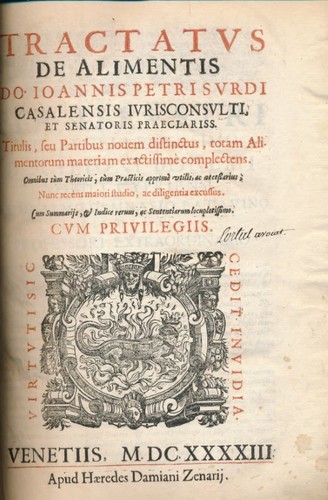 TRACTATVS
DE ALIMENTIS
DO. IOANNIS PETRI SVRDI
CASALENSIS IVRISCONSVLTI,
ET SENATORIS PRAECLARISS.
Titulis, seu Partibus nouem distinctus, totam Ali-
mentorum materiam exactissimè complectens.
Omnibus tùm Theoricis, tùm Practicis apprimè vtilis, ac necessarius;
Nunc recèns maiori studio, ac diligentia excussus.
Cum Summarijs, & Indice rerum, ac Sententiarum locupletissimo.
CVM PRIVILEGIIS.
avocat
VIRTVTI SIC
CEDIT INVIDIA
VENETIIS, M.DC.XXXXIII
Apud Hæredes Damiani Zenarij.